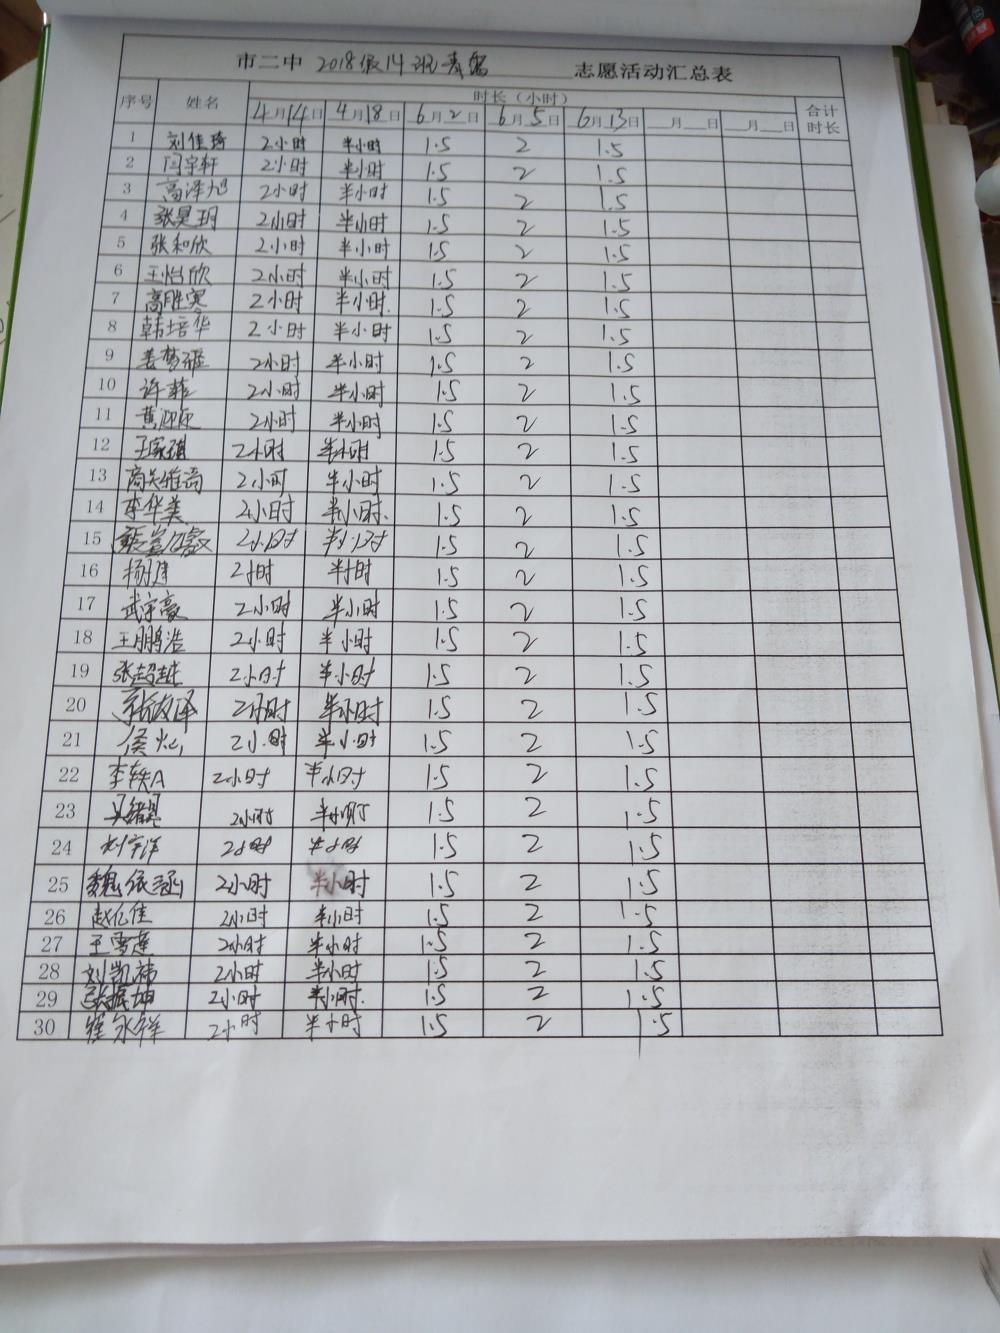 市二中 2018级14班 志愿活动汇总表
序号 姓名 时长（小时） 合计时长
4月14日 4月18日 6月2日 6月5日 6月13日 __月__日 __月__日
1 刘佳琦 2小时 半小时 1.5 2 1.5
2 闫宇轩 2小时 半小时 1.5 2 1.5
3 高泽旭 2小时 半小时 1.5 2 1.5
4 张昊玥 2小时 半小时 1.5 2 1.5
5 张和欣 2小时 半小时 1.5 2 1.5
6 王怡欣 2小时 半小时 1.5 2 1.5
7 高胜寒 2小时 半小时. 1.5 2 1.5
8 韩培华 2小时 半小时 1.5 2 1.5
9 姜梦雅 2小时 半小时 1.5 2 1.5
10 许菲 2小时 半小时 1.5 2 1.5
11 黄 2小时 半小时 1.5 2 1.5
12 王家琪 2小时 半小时 1.5 2 1.5
13 高 2小时 半小时 1.5 2 1.5
14 李华美 2小时 半小时. 1.5 2 1.5
15 2小时 半小时 1.5 2 1.5
16 杨 2小时 半小时 1.5 2 1.5
17 武宇豪 2小时 半小时 1.5 2 1.5
18 王鹏浩 2小时 半小时 1.5 2 1.5
19 张超越 2小时 半小时 1.5 2 1.5
20 2小时 半小时 1.5 2 1.5
21 侯 2小时 半小时 1.5 2 1.5
22 李轶A 2小时 半小时 1.5 2 1.5
23 2小时 半小时 1.5 2 1.5
24 刘宇洋 2小时 半小时 1.5 2 1.5
25 魏依涵 2小时 半小时 1.5 2 1.5
26 赵亿佳 2小时 半小时 1.5 2 1.5
27 王雪莲 2小时 半小时 1.5 2 1.5
28 刘凯祎 2小时 半小时 1.5 2 1.5
29 张振坤 2小时 半小时. 1.5 2 1.5
30 崔永祥 2小时 半小时 1.5 2 1.5